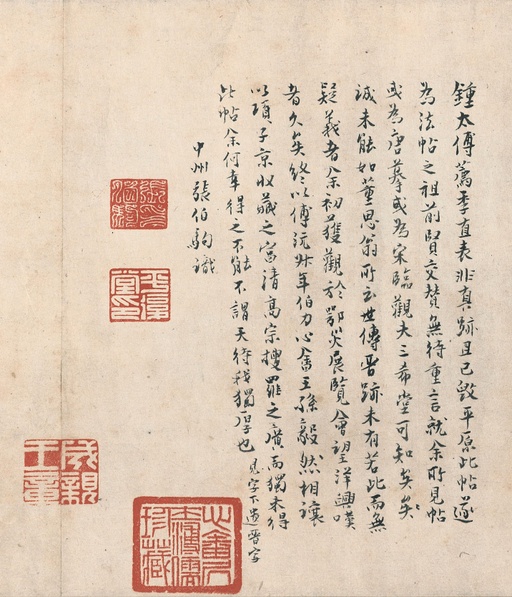 鍾太傅薦季直表非真跡且已毀平原此帖遂
為法帖之祖前賢交贊無待重言就余所見帖
或為唐摹或為宋臨觀夫三希堂可知矣矣
誠未能如董思翁所云世傳晉跡未有若此而無
疑義者余初獲觀於鄂災展覽會望洋興嘆
者久矣終以傅沅叔年伯力心畬王孫毅然相讓
以項子京收藏之富清高宗搜羅之廣而獨未得
此帖余何幸得之不能不謂天待我獨厚也
見字下遺晉字
中州張伯駒識
平復堂印
成親王章